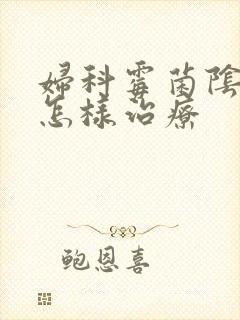 婦科霉菌陰
怎樣治療
鲍恩喜